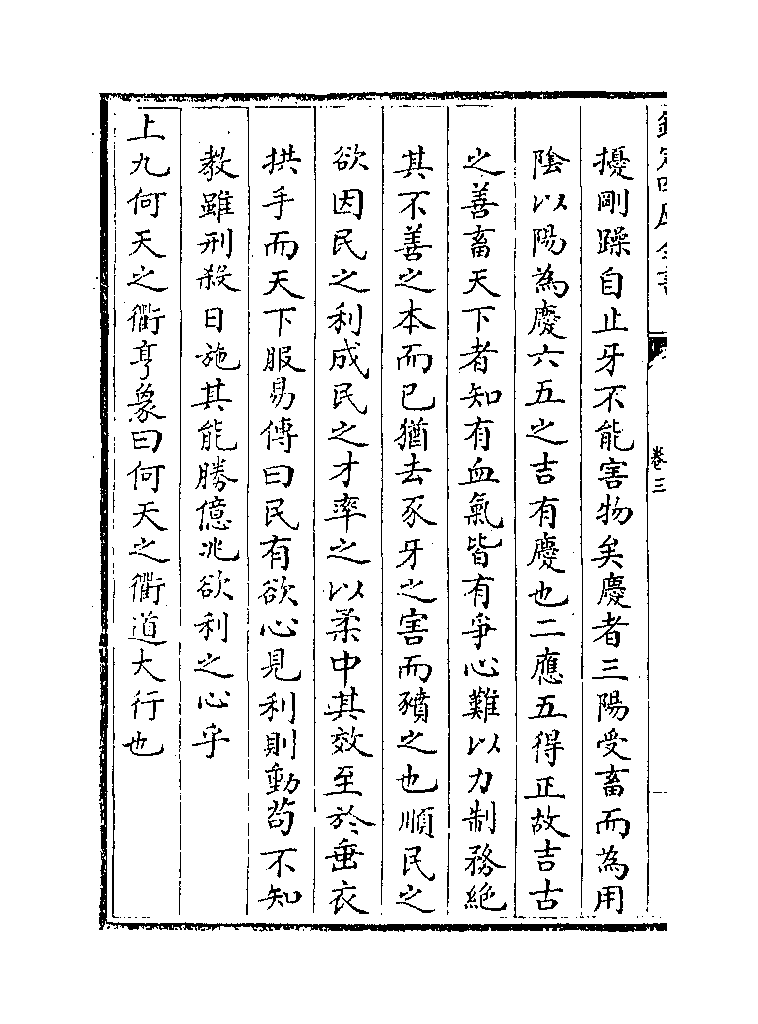 欽定四庫全書
卷三
擾剛躁自止牙不能害物矣慶者三陽受畜而為用
陰以陽為慶六五之吉有慶也二應五得正故吉古
之善畜天下者知有血氣皆有爭心難以力制務絶
其不善之本而已猶去豕牙之害而豶之也順民之
欲因民之利成民之才率之以柔中其效至於垂衣
拱手而天下服易傳曰民有欲心見利則動茍不知
教雖刑殺日施其能勝億兆欲利之心乎
上九何天之衢亨象曰何天之衢道大行也